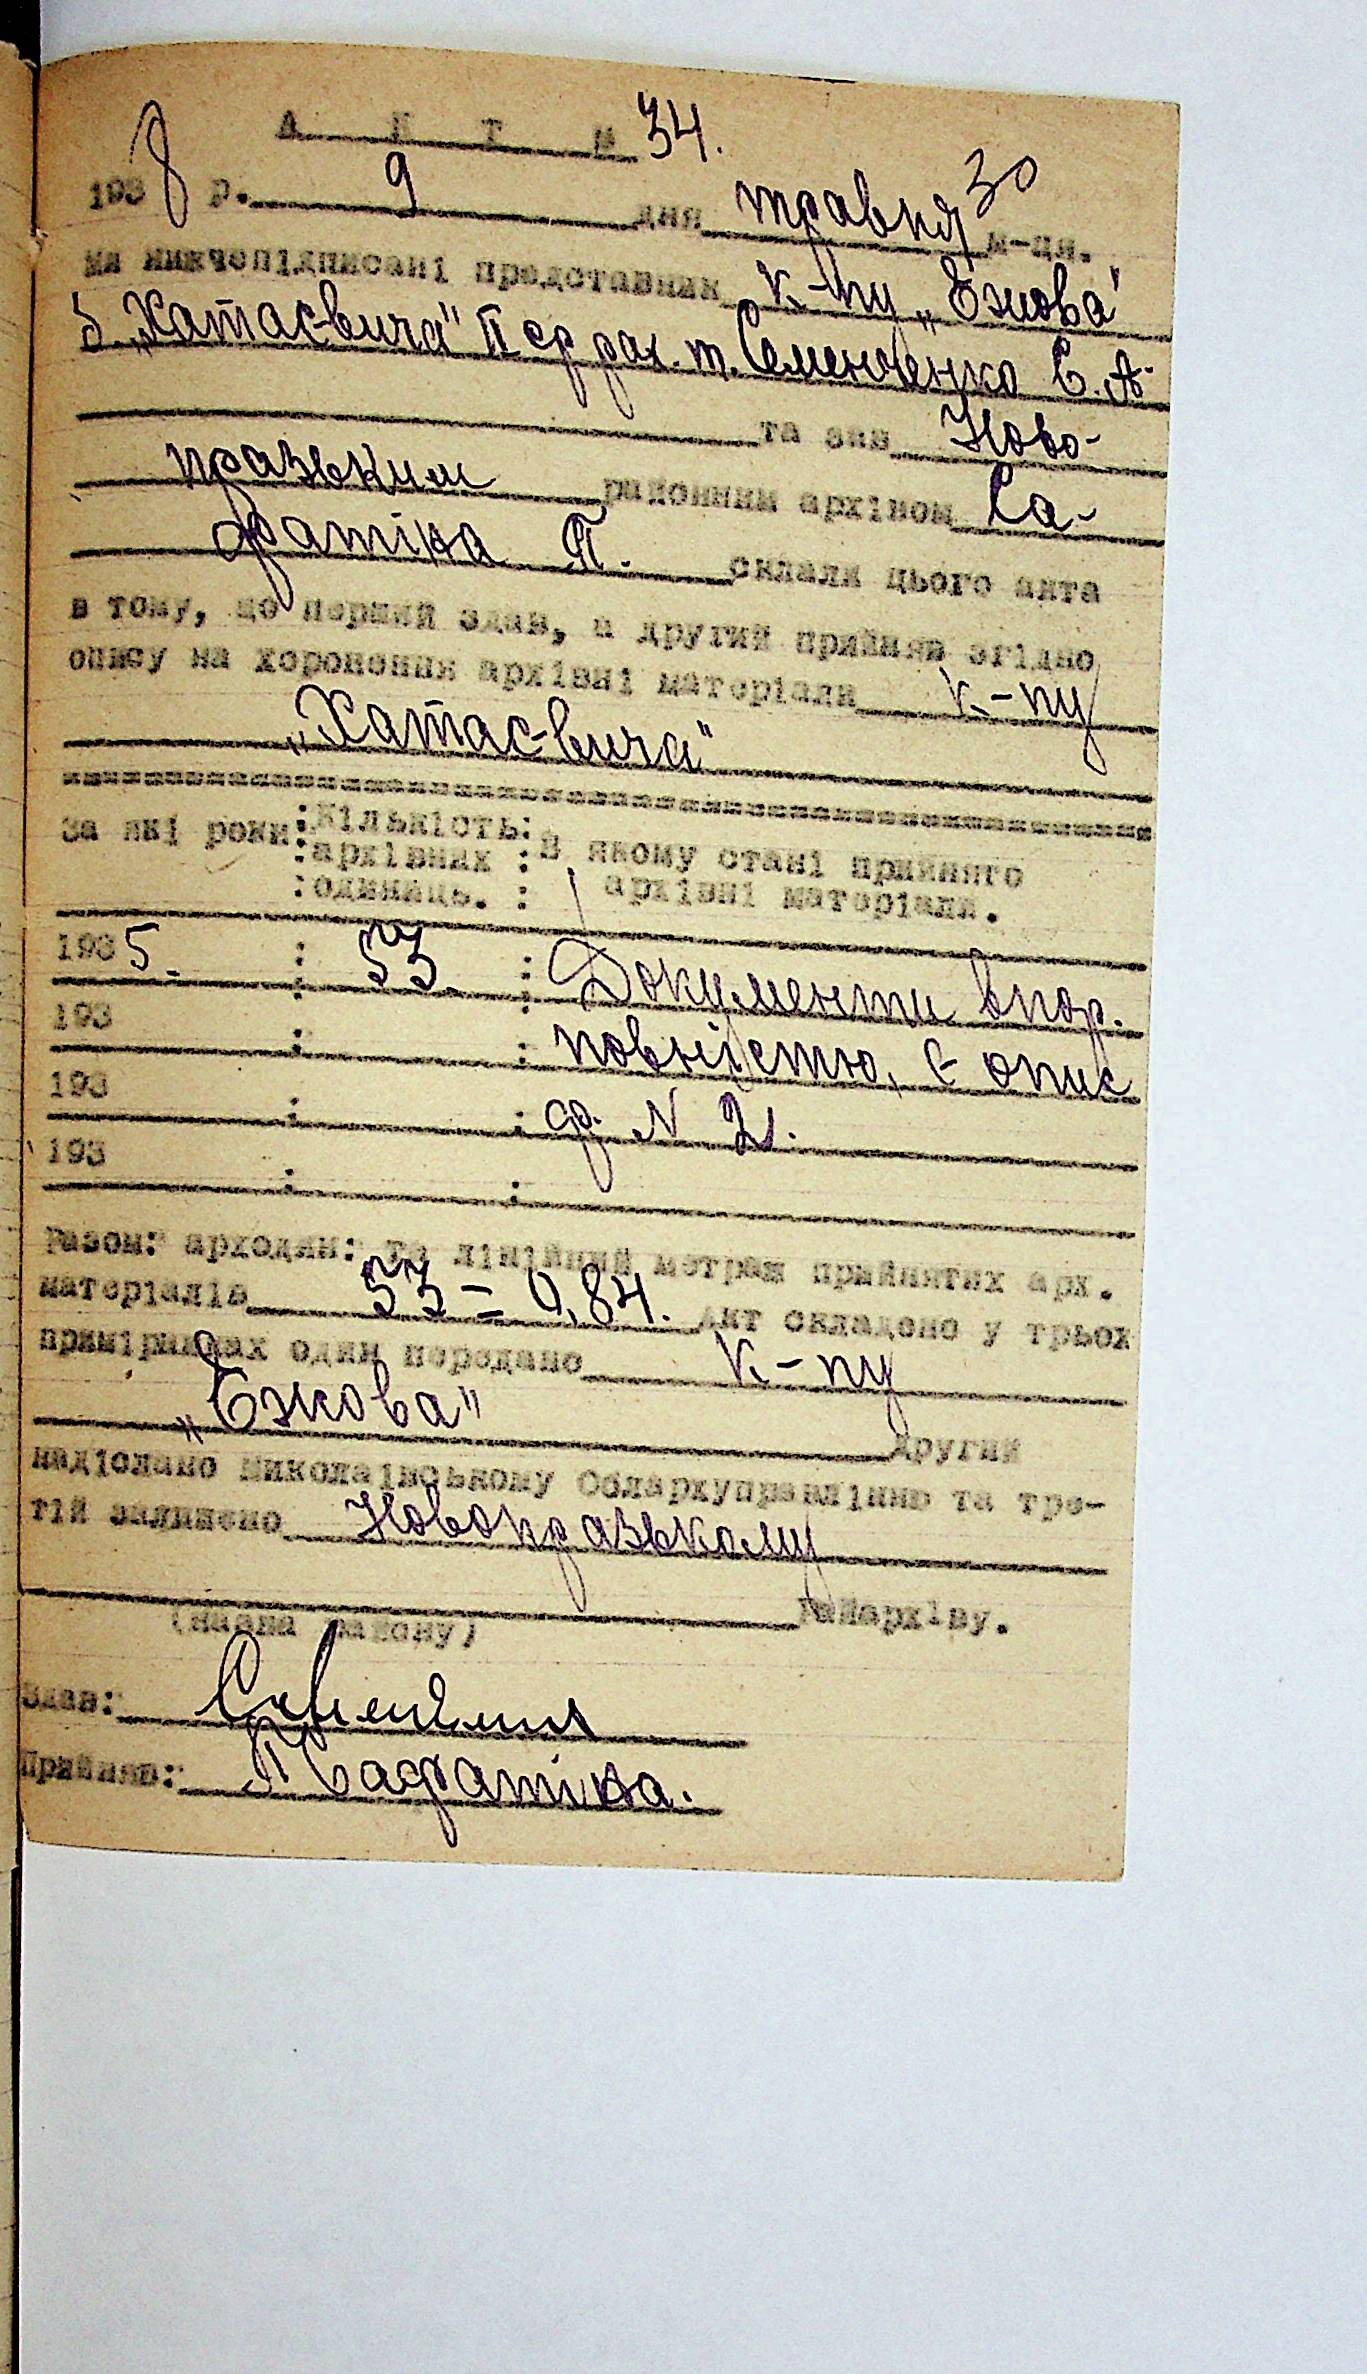 А К Т № 34.
30
1938 р. 9 дня травня м-ця.
ми нижчепідписані представник к-пу „Єжова"
„Хатаєвича" ІІ ср рах. т. Семенченко Є. А.
та зав Ново-
празьким районним архівом Са-
фатіна П. склали цього акта
в тому, що перший здав, а другий прийняв згідно
опису на хоронення архівні матеріали к-пу
„Хатаєвича"
За які роки: Кількість: В якому стані прийнято
архівних : архівні матеріали.
: одиниць. :
1935. : 53. : Документи впор.
193 : : повністю, є опис
193 : : ф. № 2.
193 : :
Разом: арходин: та лінійний метраж прийнятих арх.
матеріалів 53 = 0,84. Акт складено у трьох
примірниках один передано к-пу
„Єжова" другий
надіслано Миколаївському Облархуправлінню та тре-
тій залишено Новопразькому
Райархіву.
(назва району)
Здав:
Прийняв: П Сафатіна.